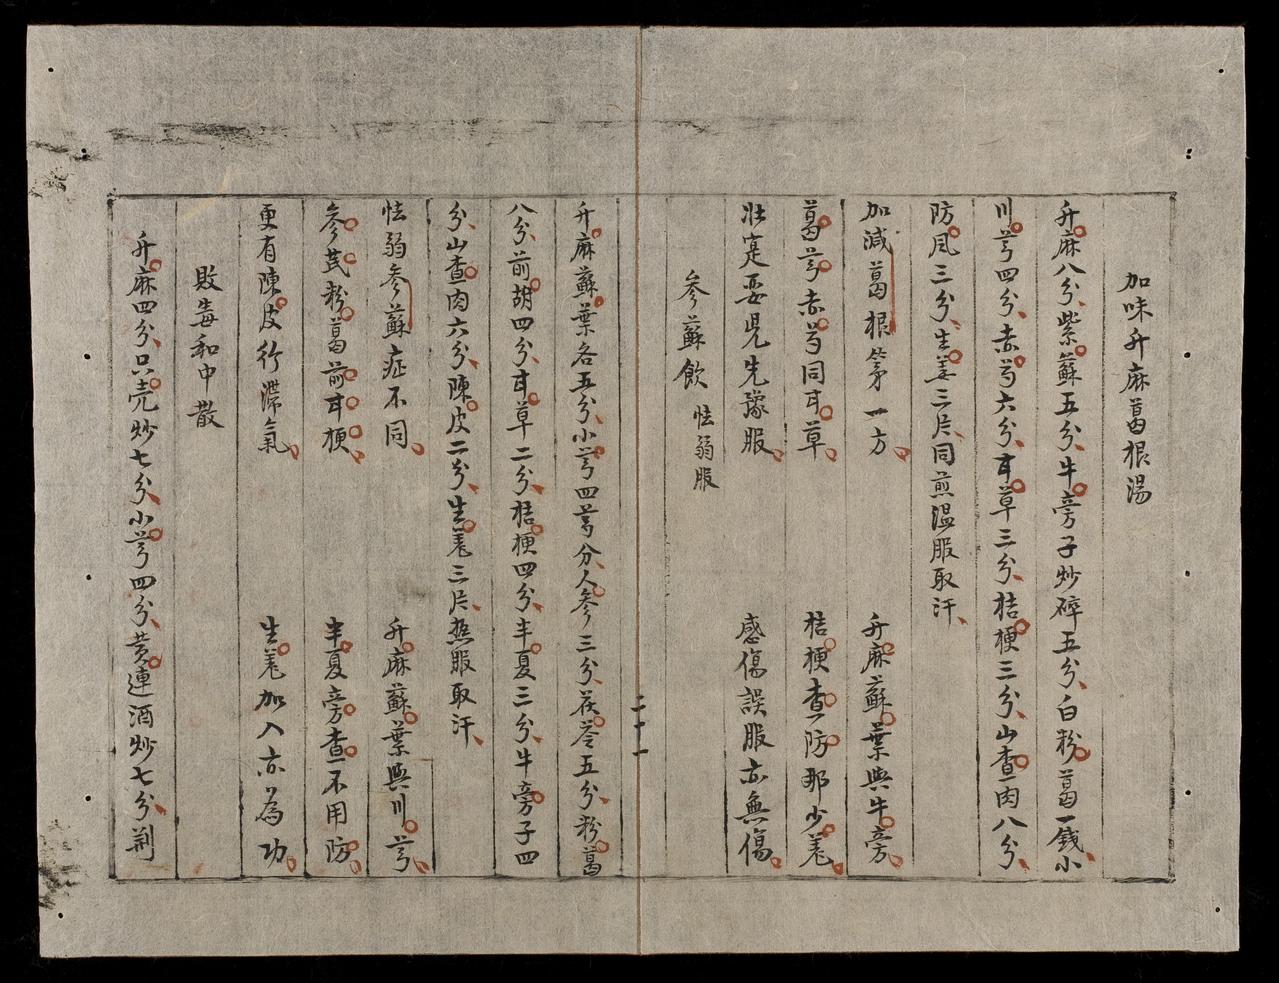 加味升麻葛根湯
升麻八分紫蘇五分牛旁子炒碎五分白粉葛一錢小
川芎四分赤芍六分甘草三分桔梗三分山查肉八分
防風三分生姜三片同煎温服取汗
加減葛根第一方 升麻蘇葉與牛旁
葛芎赤芍同甘草 桔梗查防那少羗
壯寔嬰児先豫服 感傷誤服亦無傷
參蘇飲 怯弱服
二十一
升麻蘇葉各五分小芎四分人參三分茯苓五分粉葛
八分前胡四分甘草二分桔梗四分半夏三分牛旁子四
分山查肉六分陳皮二分生羗三片热服取汗
怯弱參蘇症不同 升麻蘇葉與川芎
參茋粉葛前甘梗 半夏旁查不用防
更有陳皮行滯氣 生羗加入亦為功
敗毒和中散
升麻四分只壳炒七分小芎四分黄連酒炒七分荊